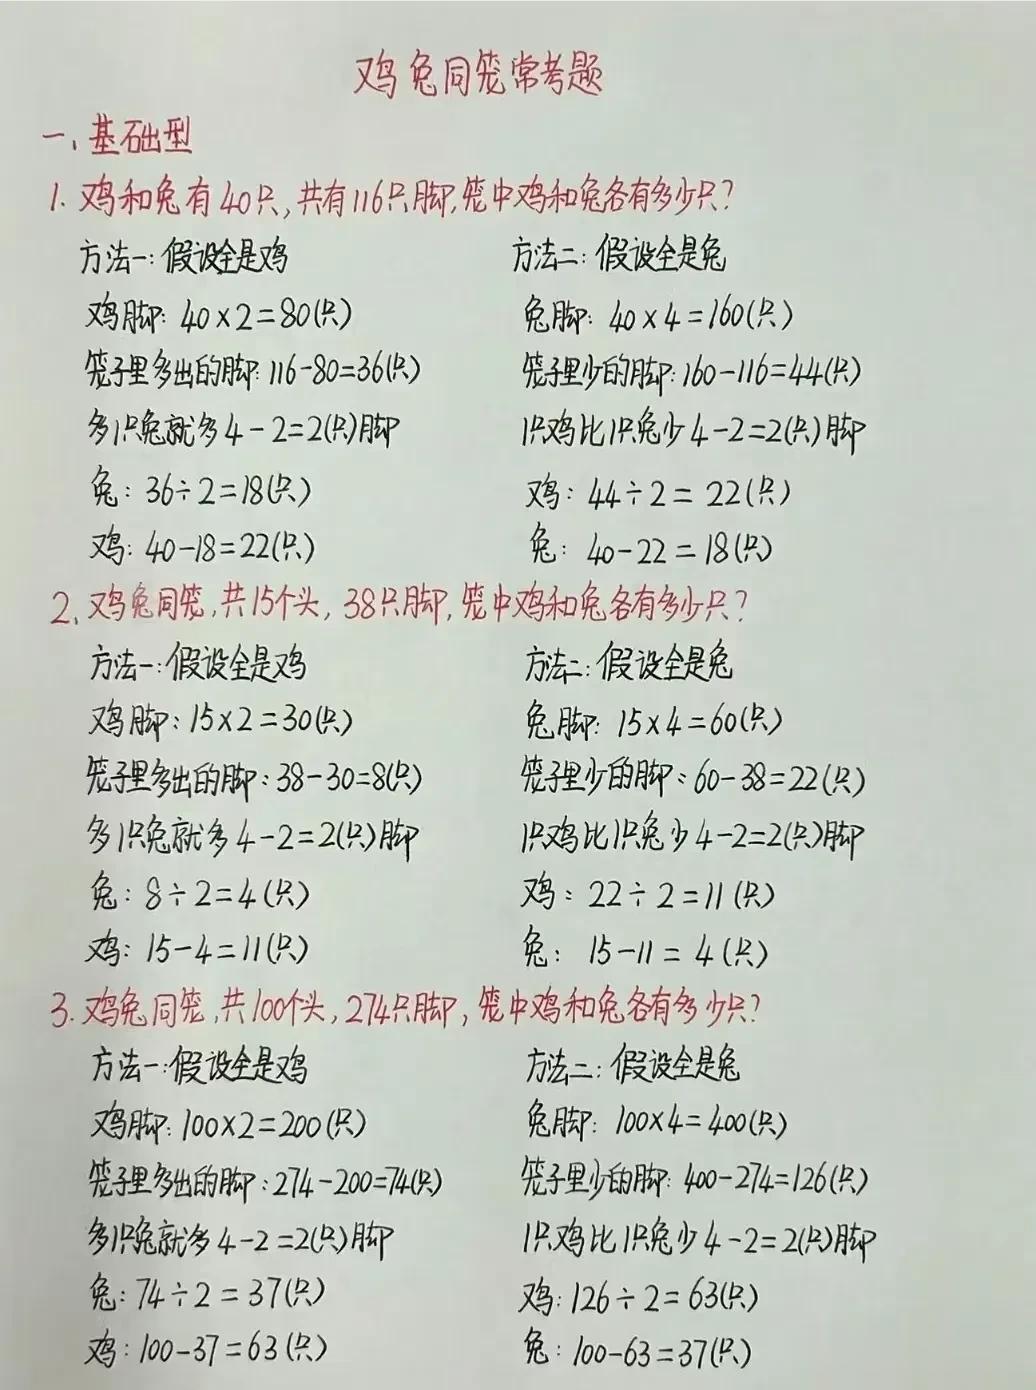 鸡兔同笼常考题
一、基础型
1. 鸡和兔有40只,共有116只脚,笼中鸡和兔各有多少只?
方法一:假设全是鸡
鸡脚: 40×2=80(只)
笼子里多出的脚:116-80=36(只)
多1只兔就多4-2=2(只)脚
兔: 36÷2=18(只)
鸡: 40-18=22(只)
方法二:假设全是兔
兔脚: 40×4=160(只)
笼子里少的脚:160-116=44(只)
1只鸡比1只兔少4-2=2(只)脚
鸡: 44÷2=22(只)
兔: 40-22=18(只)
2、鸡兔同笼,共15个头,38只脚,笼中鸡和兔各有多少只?
方法一:假设全是鸡
鸡脚:15×2=30(只)
笼子里多出的脚:38-30=8(只)
多1只兔就多4-2=2(只)脚
兔: 8÷2=4(只)
鸡: 15-4=11(只)
方法二:假设全是兔
兔脚: 15×4=60(只)
笼子里少的脚:60-38=22(只)
1只鸡比1只兔少4-2=2(只)脚
鸡: 22÷2=11(只)
兔: 15-11=4(只)
3. 鸡兔同笼,共100个头,274只脚,笼中鸡和兔各有多少只?
方法一:假设全是鸡
鸡脚:100×2=200(只)
笼子里多出的脚:274-200=74(只)
多1只兔就多4-2=2(只)脚
兔:74÷2=37(只)
鸡:100-37=63(只)
方法二:假设全是兔
兔脚: 100×4=400(只)
笼子里少的脚: 400-274=126(只)
1只鸡比1只兔少4-2=2(只)脚
鸡:126÷2=63(只)
兔:100-63=37(只)